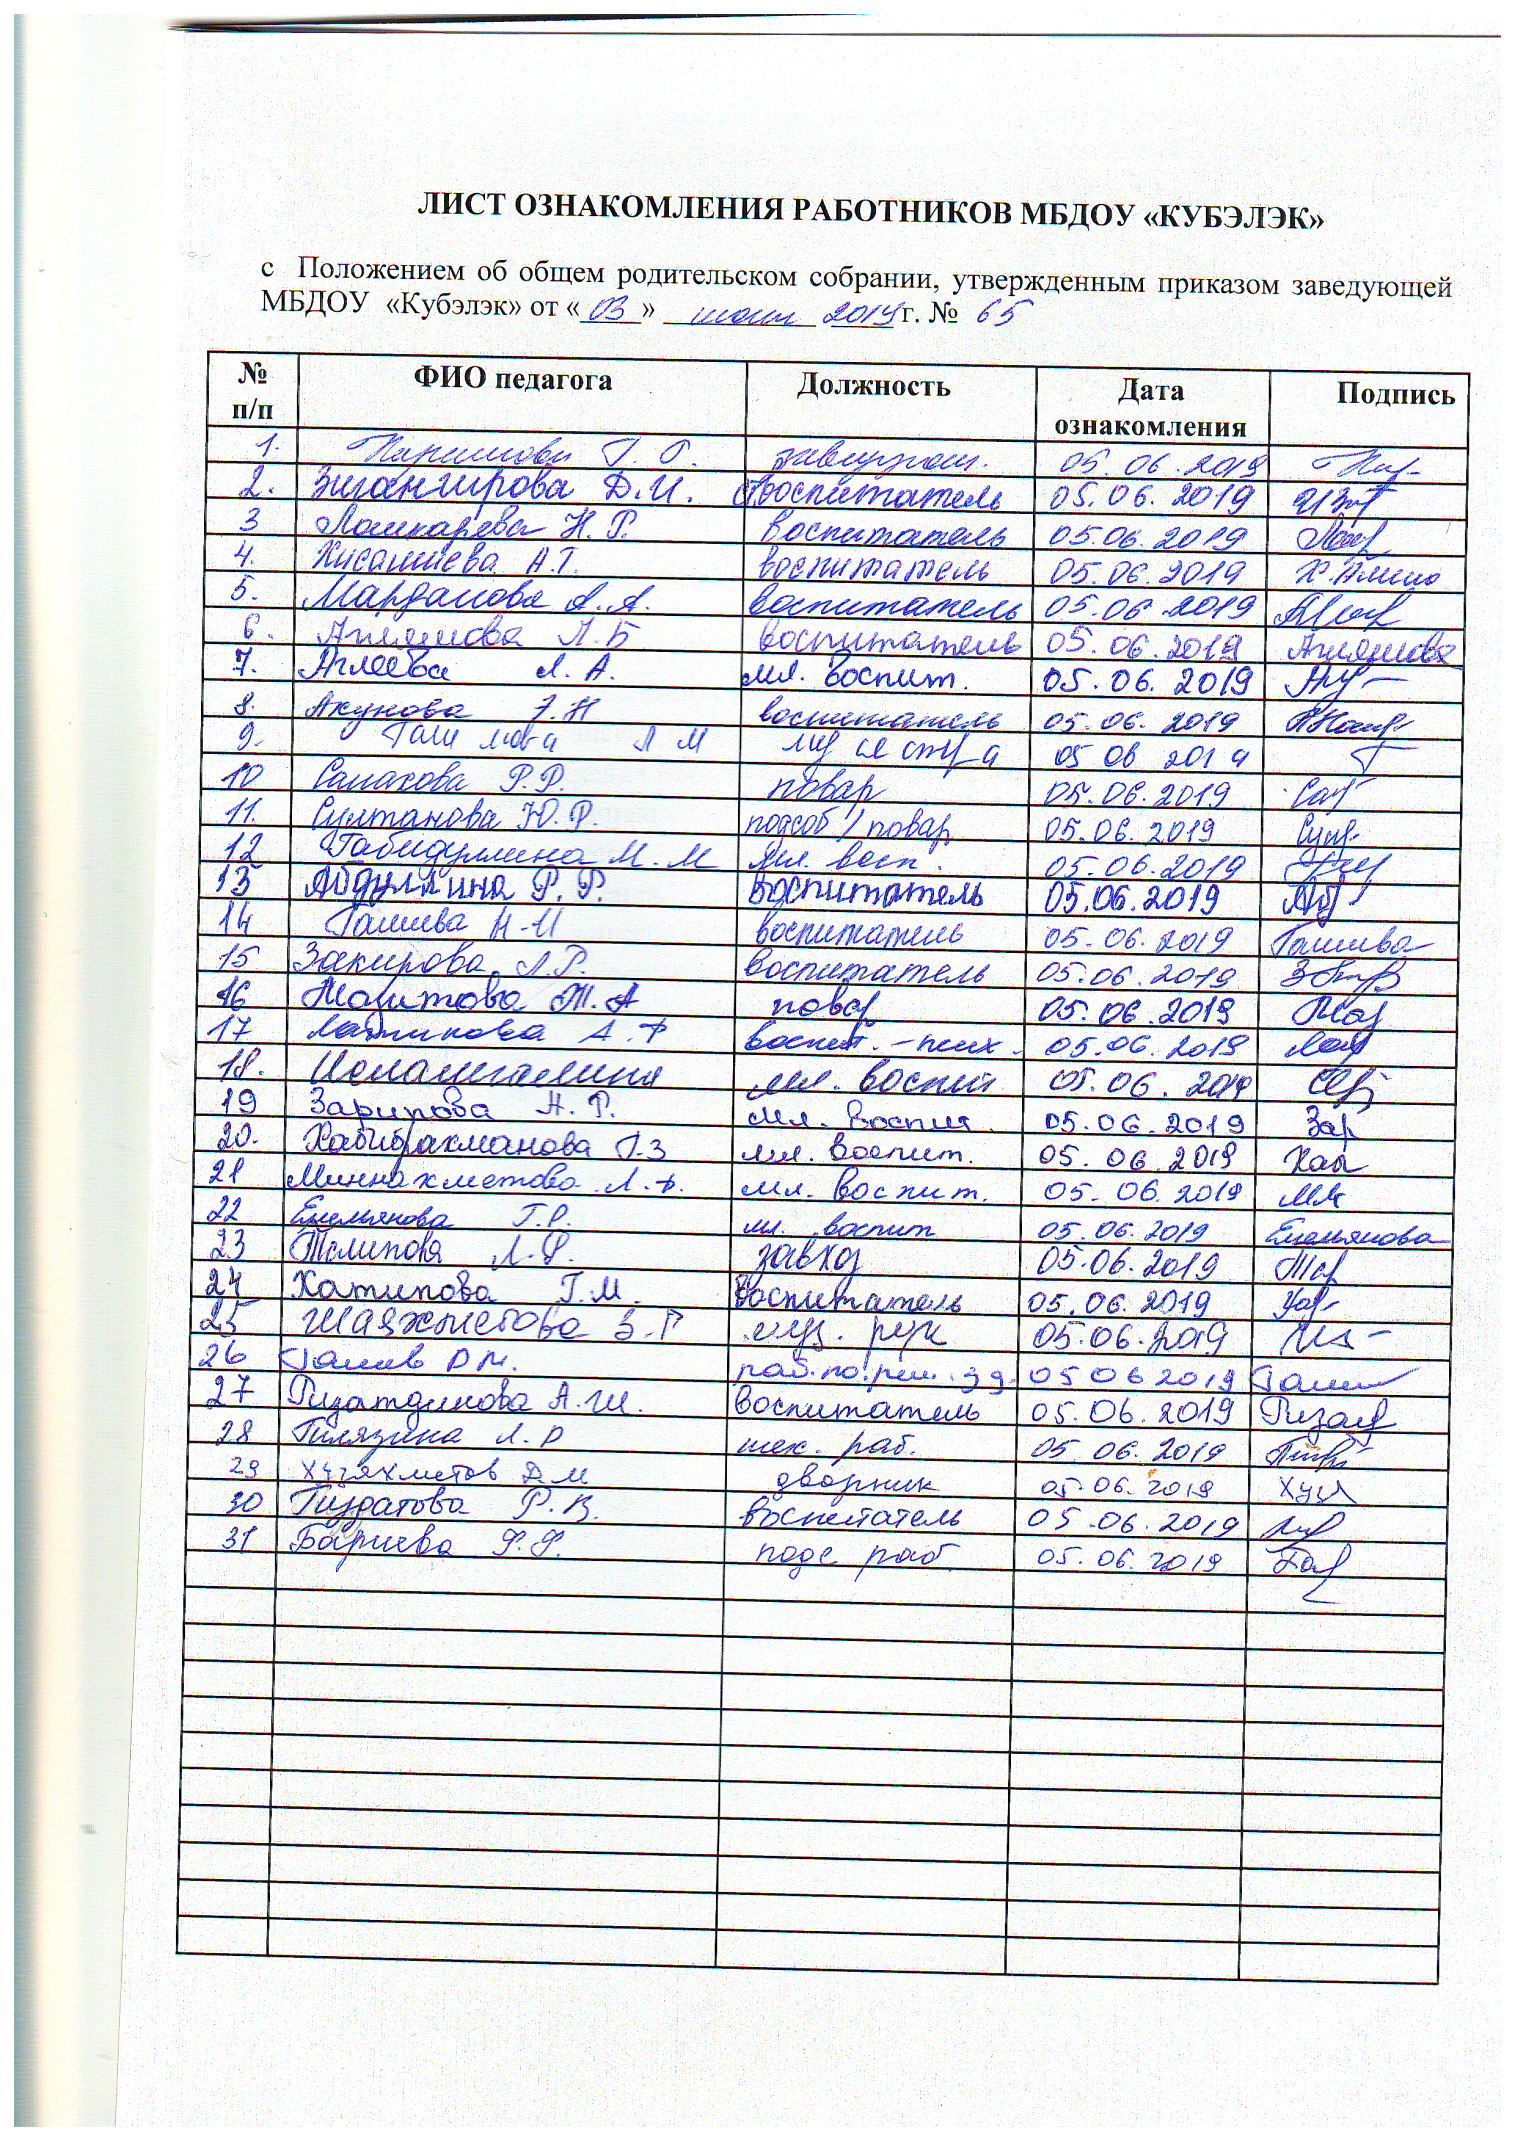 ЛИСТ ОЗНАКОМЛЕНИЯ РАБОТНИКОВ МБДОУ «КУБЭЛЭК»
с Положением об общем родительском собрании, утвержденным приказом заведующей
МБДОУ «Кубэлэк» от «03» июня 2019 г. № 65
№ п/п ФИО педагога Должность Дата ознакомления Подпись
1. Г. Г. заведующ. 05.06.2019
2. Зигангирова Д.И. ст воспитатель 05.06.2019
3 Лашкарева Н.Г. воспитатель 05.06.2019
4. Хисамиева А.Т. воспитатель 05.06.2019
5. Марданова А.А. воспитатель 05.06.2019
6. Л.Б воспитатель 05.06.2019
7. Аглеева Л.А. мл. воспит. 05.06.2019
8. Акунова воспитатель 05.06.2019
9. Галимова Л М медсестра 05 06 2019
10 Салахова Р.Р. повар 05.06.2019
11. Султанова Ю.Р. подсоб/повар 05.06.2019
12 Габидуллина М.М мл. восп. 05.06.2019
13 Абдуллина Р.Р. воспитатель 05.06.2019
14 Галиева Н-И воспитатель 05.06.2019 Галиева
15 Закирова Л.Р. воспитатель 05.06.2019
16 повар 05.06.2019
17 Латыпова А.Ф воспит.-псих. 05.06.2019
18. Исламгалиева мл. воспит 05.06.2019
19 Зарипова Н.Г. мл. воспит. 05.06.2019 Зар
20. Хабибрахманова Г.З мл. воспит. 05.06.2019
21 Миннахметова Л.Ф. мл. воспит. 05.06.2019
22 Емельянова Г.Р. мл. воспит 05.06.2019 Емельянова
23 Талипова Л.Ф. завхоз 05.06.2019
24 Хатипова Г.М. воспитатель 05.06.2019
25 Шаяхметова З.Г муз. рук 05.06.2019
26 Галиев Д.М. раб. по рем. зд. 05 06 2019
27 Гизатдинова А.Ш. воспитатель 05.06.2019
28 Гилязина Л.Р тех. раб. 05.06.2019
29 Хузяхметов Д.М дворник 05.06.2019
30 Гиззатова Р.В. воспитатель 05.06.2019
31 Бариева Ф.Ф. подс раб 05.06.2019